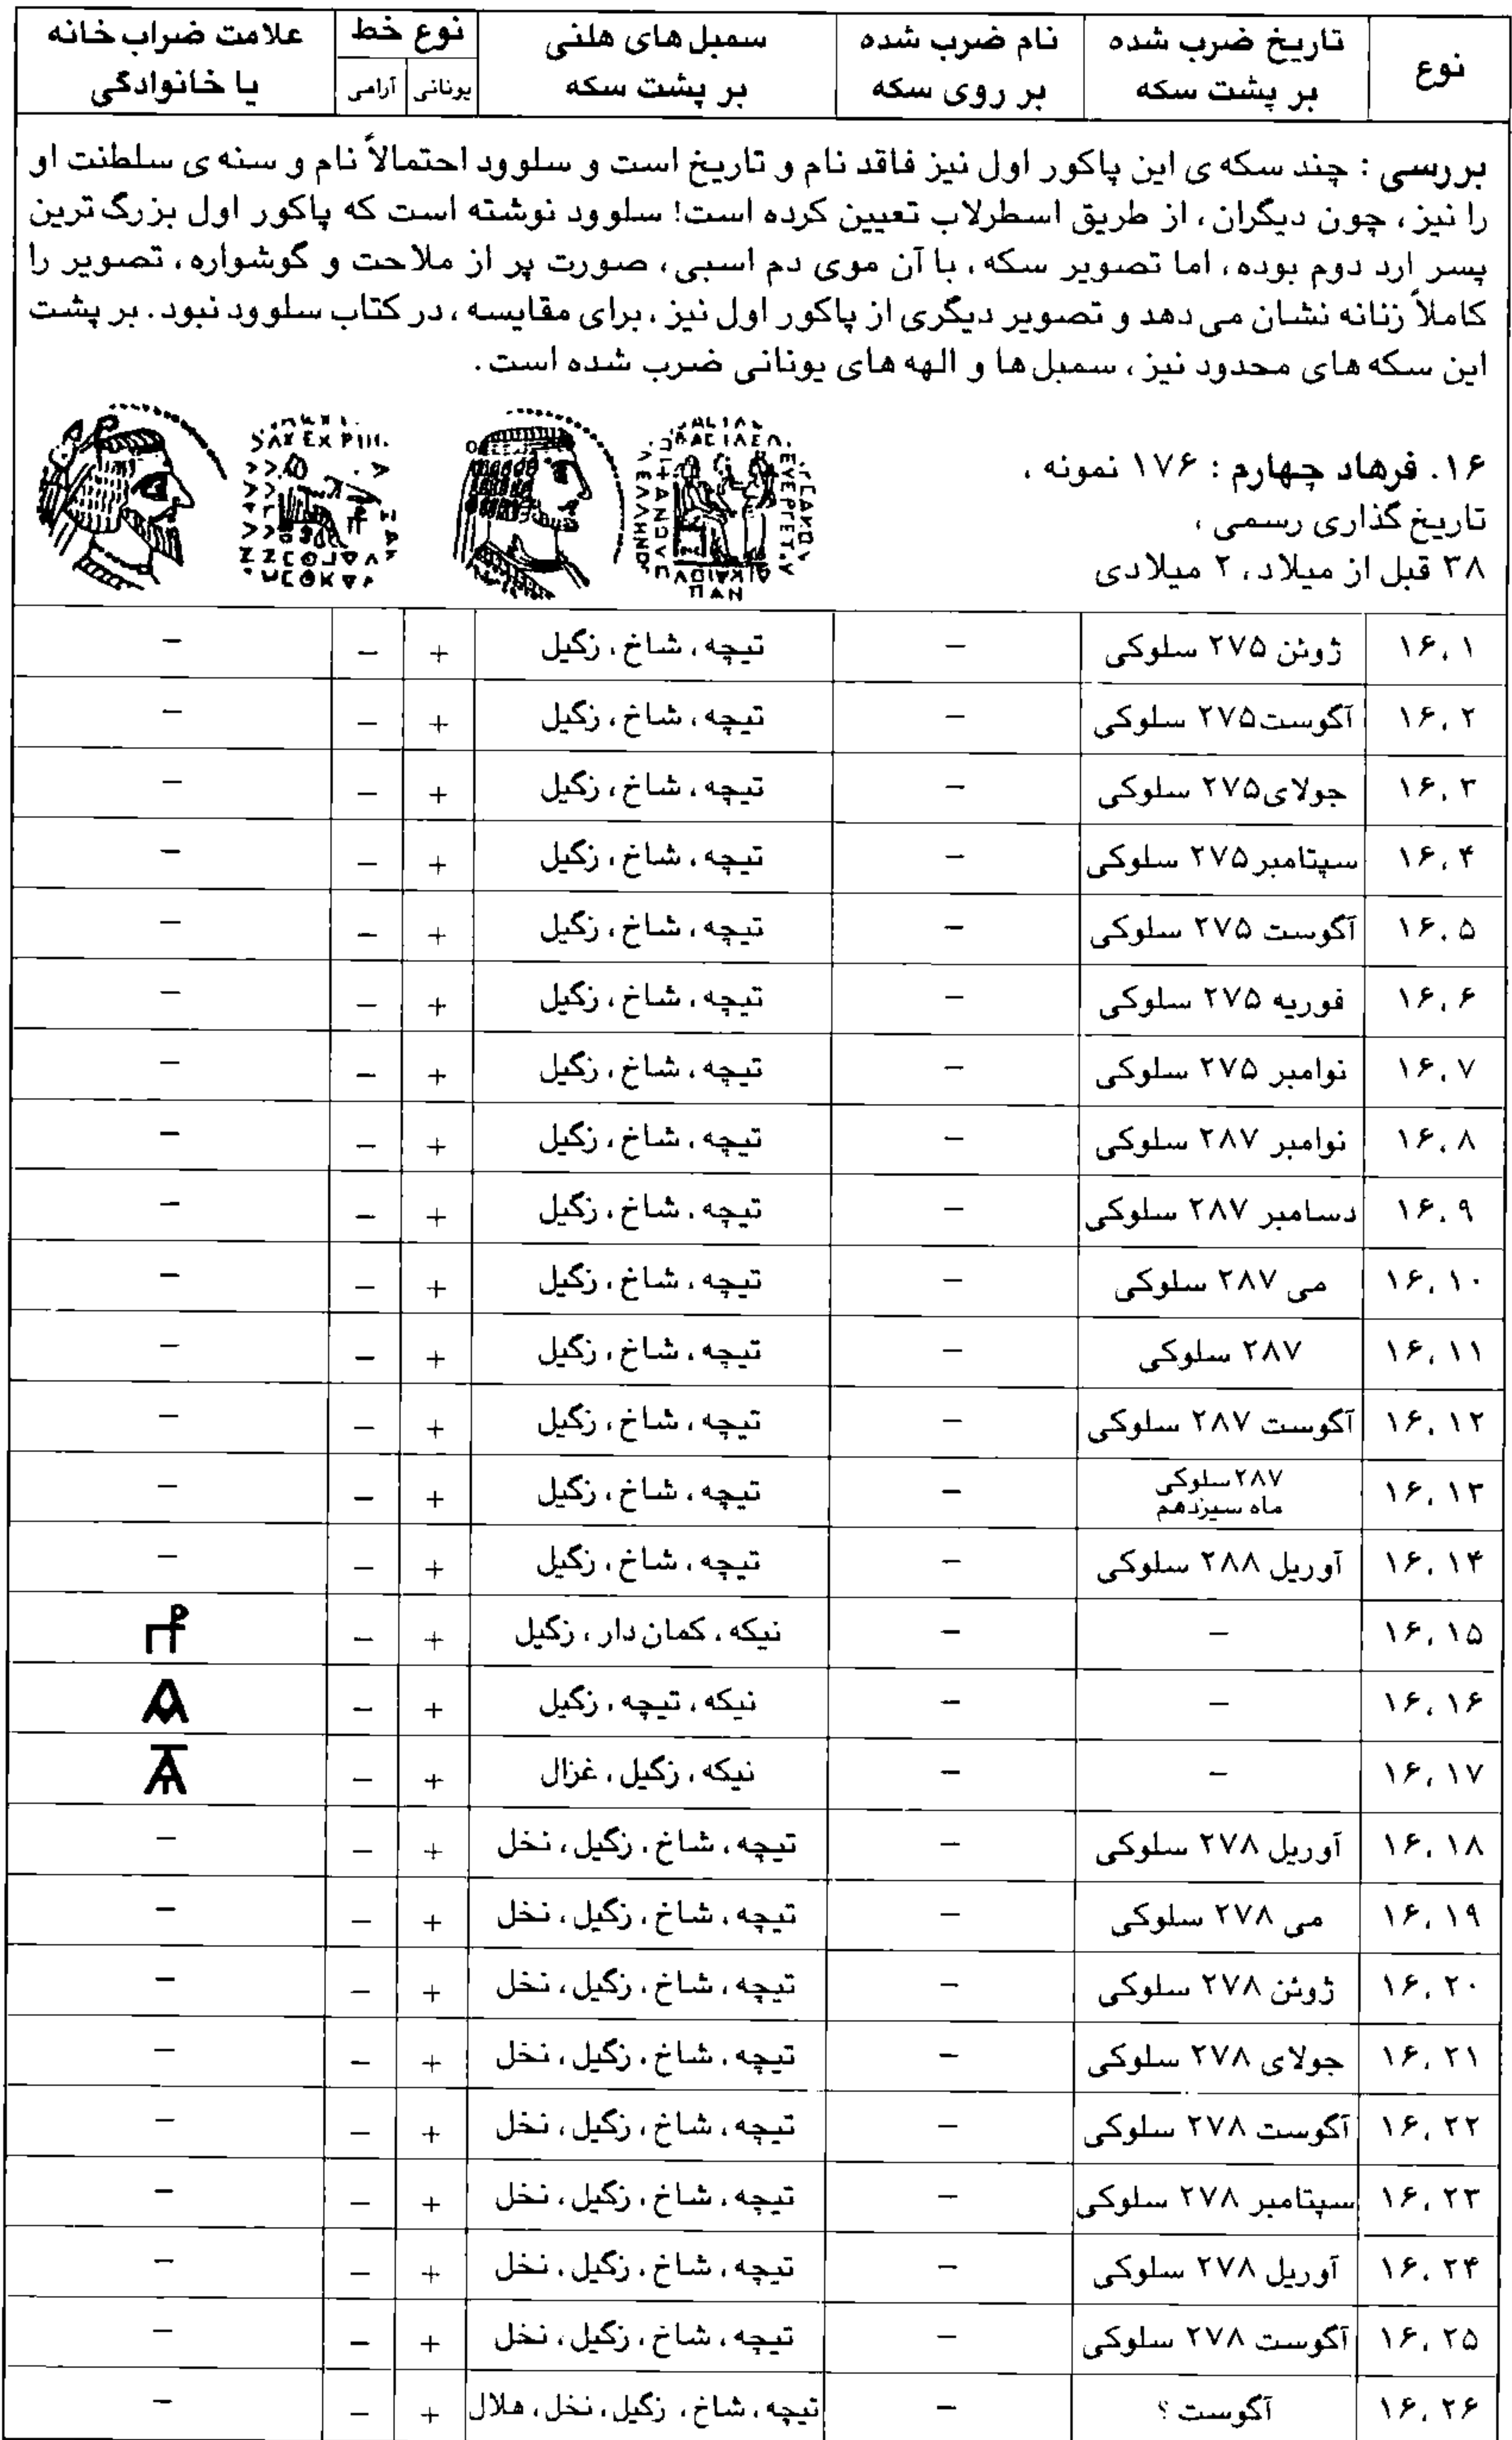 نوع | تاریخ ضرب شده بر پشت سکه | نام ضرب شده بر روی سکه | سمبل های هلنی بر پشت سکه | نوع خط: یونانی | آرامی | علامت ضراب خانه یا خانوادگی
بررسی : چند سکه ی این پاکور اول نیز فاقد نام و تاریخ است و سلوود احتمالاً نام و سنه ی سلطنت او
را نیز ، چون دیگران ، از طریق اسطرلاب تعیین کرده است! سلوود نوشته است که پاکور اول بزرگ ترین
پسر ارد دوم بوده ، اما تصویر سکه ، با آن موی دم اسبی ، صورت پر از ملاحت و گوشواره ، تصویر را
کاملاً زنانه نشان می دهد و تصویر دیگری از پاکور اول نیز ، برای مقایسه ، در کتاب سلوود نبود . بر پشت
این سکه های محدود نیز ، سمبل ها و الهه های یونانی ضرب شده است .
۱۶. فرهاد چهارم : ۱۷۶ نمونه ،
تاریخ گذاری رسمی ،
۳۸ قبل از میلاد ، ۲ میلادی
۱۶،۱ | ژوئن ۲۷۵ سلوکی | – | تیچه ، شاخ ، زگیل | + | – | –
۱۶،۲ | آگوست ۲۷۵ سلوکی | – | تیچه ، شاخ ، زگیل | + | – | –
۱۶،۳ | جولای ۲۷۵ سلوکی | – | تیچه ، شاخ ، زگیل | + | – | –
۱۶،۴ | سپتامبر ۲۷۵ سلوکی | – | تیچه ، شاخ ، زگیل | + | – | –
۱۶،۵ | آگوست ۲۷۵ سلوکی | – | تیچه ، شاخ ، زگیل | + | – | –
۱۶،۶ | فوریه ۲۷۵ سلوکی | – | تیچه ، شاخ ، زگیل | + | – | –
۱۶،۷ | نوامبر ۲۷۵ سلوکی | – | تیچه ، شاخ ، زگیل | + | – | –
۱۶،۸ | نوامبر ۲۸۷ سلوکی | – | تیچه ، شاخ ، زگیل | + | – | –
۱۶،۹ | دسامبر ۲۸۷ سلوکی | – | تیچه ، شاخ ، زگیل | + | – | –
۱۶،۱۰ | می ۲۸۷ سلوکی | – | تیچه ، شاخ ، زگیل | + | – | –
۱۶،۱۱ | ۲۸۷ سلوکی | – | تیچه ، شاخ ، زگیل | + | – | –
۱۶،۱۲ | آگوست ۲۸۷ سلوکی | – | تیچه ، شاخ ، زگیل | + | – | –
۱۶،۱۳ | ۲۸۷ سلوکی ماه سیزدهم | – | تیچه ، شاخ ، زگیل | + | – | –
۱۶،۱۴ | آوریل ۲۸۸ سلوکی | – | تیچه ، شاخ ، زگیل | + | – | –
۱۶،۱۵ | – | – | نیکه ، کمان دار ، زگیل | + | –
۱۶،۱۶ | – | – | نیکه ، تیچه ، زگیل | + | –
۱۶،۱۷ | – | – | نیکه ، زگیل ، غزال | + | –
۱۶،۱۸ | آوریل ۲۷۸ سلوکی | – | تیچه ، شاخ ، زگیل ، نخل | + | – | –
۱۶،۱۹ | می ۲۷۸ سلوکی | – | تیچه ، شاخ ، زگیل ، نخل | + | – | –
۱۶،۲۰ | ژوئن ۲۷۸ سلوکی | – | تیچه ، شاخ ، زگیل ، نخل | + | – | –
۱۶،۲۱ | جولای ۲۷۸ سلوکی | – | تیچه ، شاخ ، زگیل ، نخل | + | – | –
۱۶،۲۲ | آگوست ۲۷۸ سلوکی | – | تیچه ، شاخ ، زگیل ، نخل | + | – | –
۱۶،۲۳ | سپتامبر ۲۷۸ سلوکی | – | تیچه ، شاخ ، زگیل ، نخل | + | – | –
۱۶،۲۴ | آوریل ۲۷۸ سلوکی | – | تیچه ، شاخ ، زگیل ، نخل | + | – | –
۱۶،۲۵ | آگوست ۲۷۸ سلوکی | – | تیچه ، شاخ ، زگیل ، نخل | + | – | –
۱۶،۲۶ | آگوست ؟ | – | تیچه ، شاخ ، زگیل ، نخل ، هلال | + | – | –